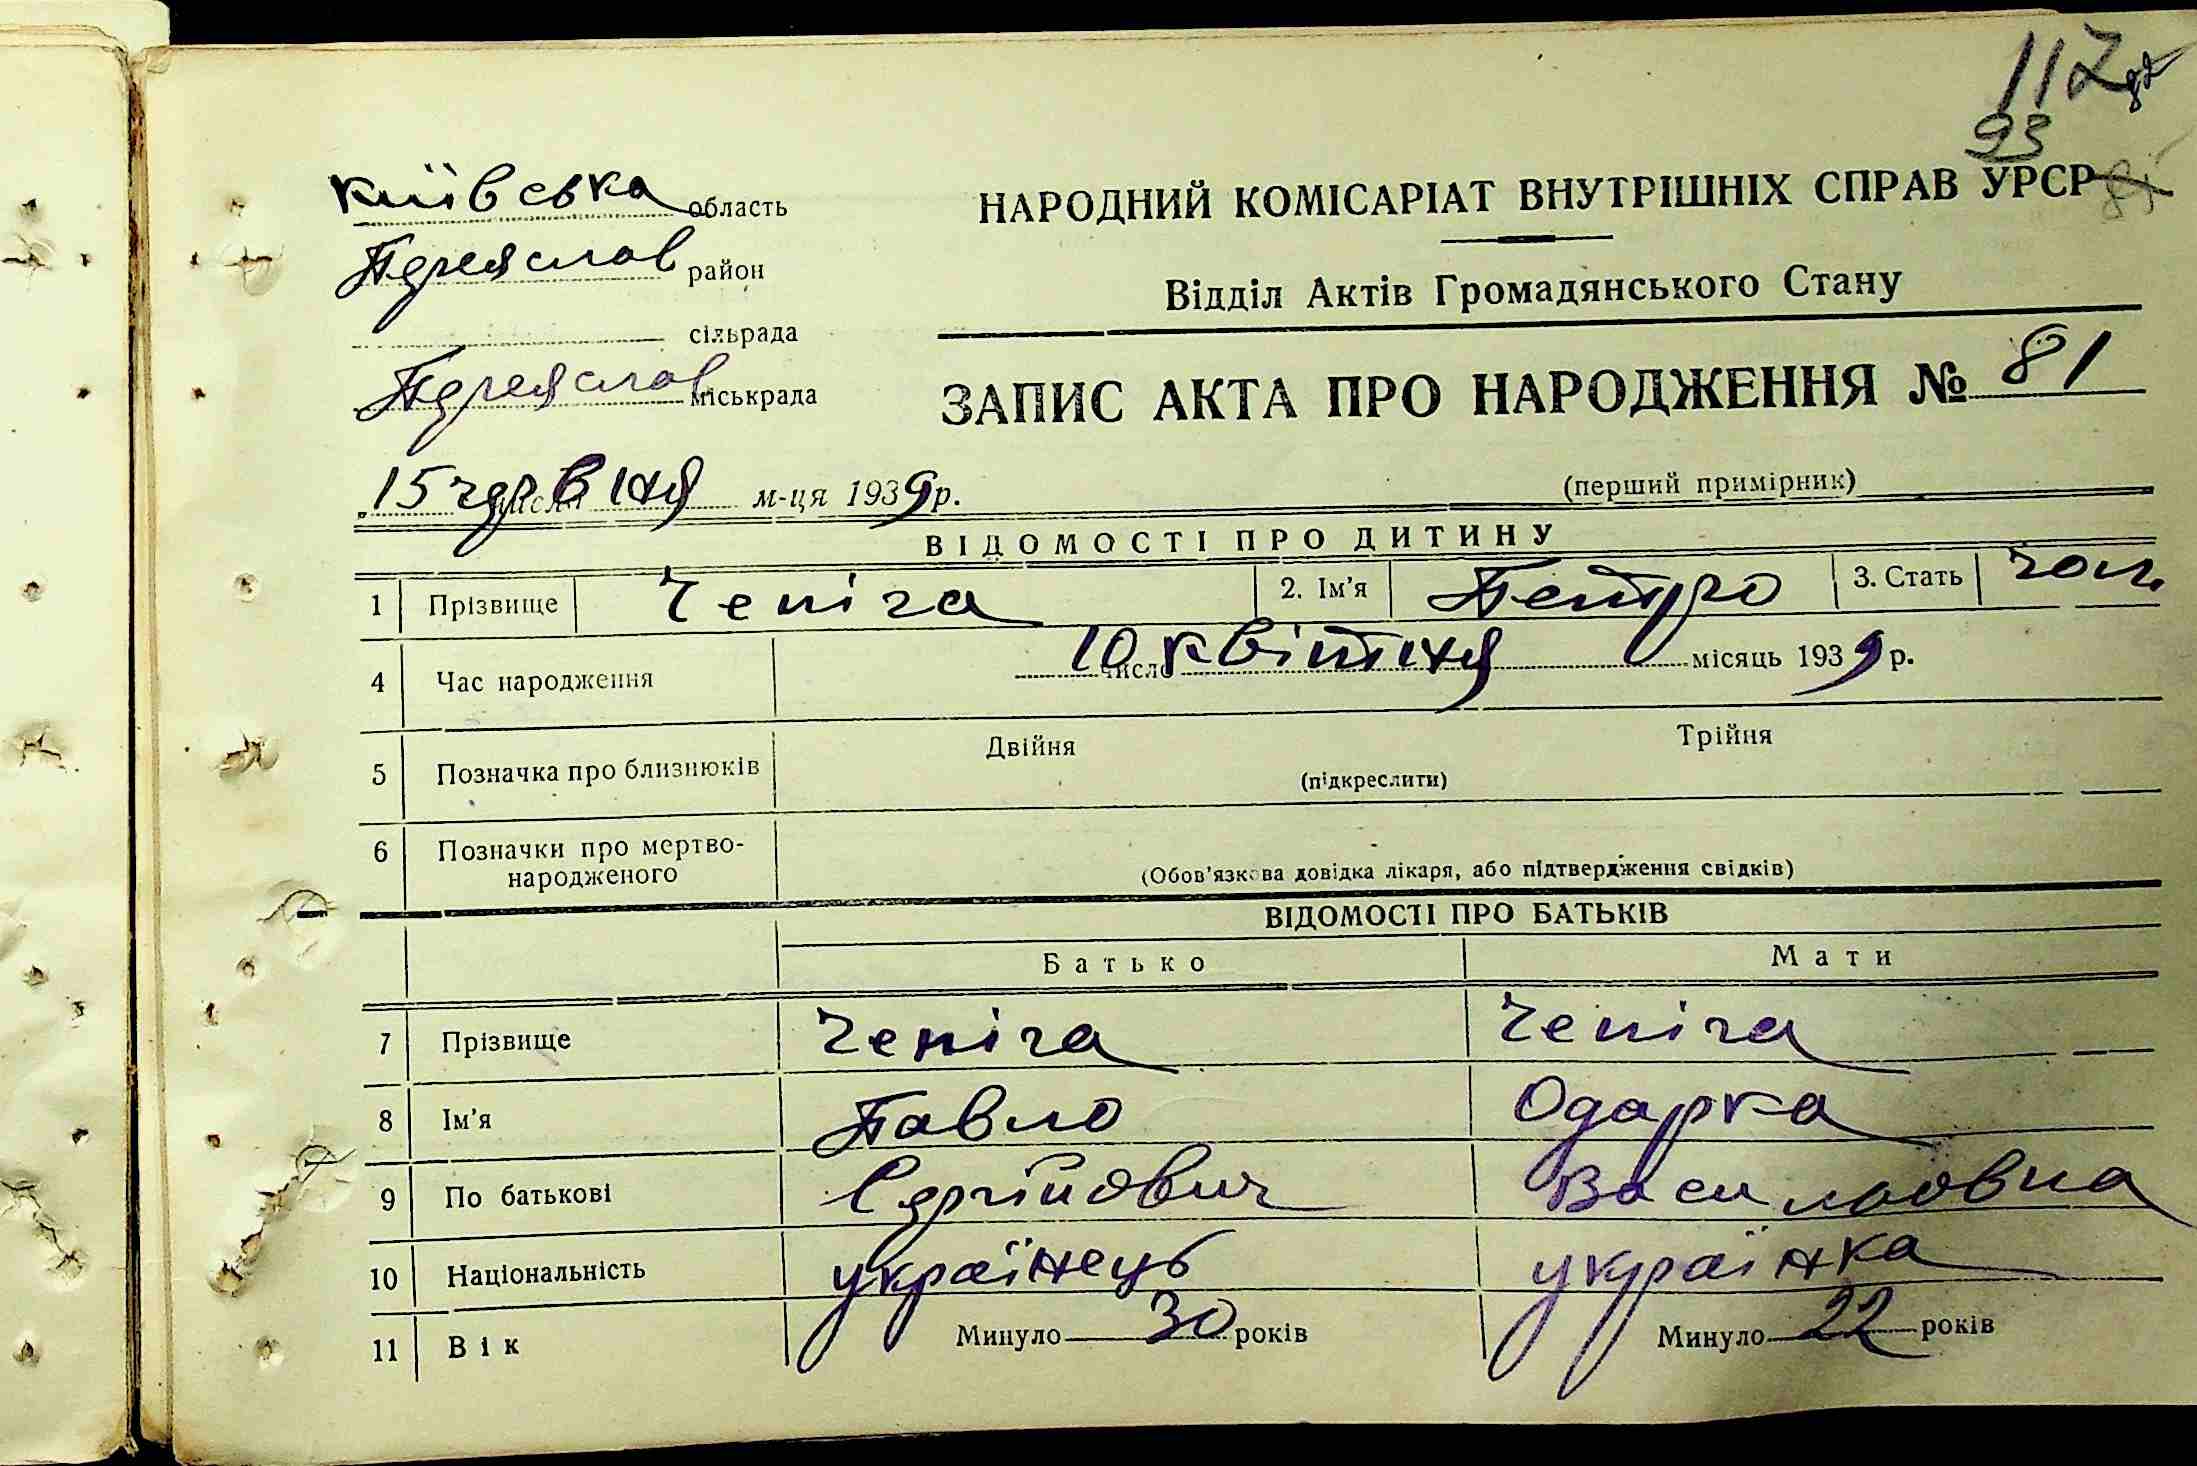 117
93
Київська область
Переяслав район
сільрада
Переяслав міськрада
НАРОДНИЙ КОМІСАРІАТ ВНУТРІШНІХ СПРАВ УРСР
Відділ Актів Громадянського Стану
ЗАПИС АКТА ПРО НАРОДЖЕННЯ № 81
15 числа червня м-ця 1939 р.
(перший примірник)
ВІДОМОСТІ ПРО ДИТИНУ
1 Прізвище Чепіга 2. Ім'я Петро 3. Стать чол.
4 Час народження 10 число квітня місяць 1939 р.
5 Позначка про близнюків Двійня Трійня
(підкреслити)
6 Позначки про мертво-
народженого
(Обов'язкова довідка лікаря, або підтвердження свідків)
ВІДОМОСТІ ПРО БАТЬКІВ
Батько Мати
7 Прізвище Чепіга Чепіга
8 Ім'я Павло Одарка
9 По батькові Сергійович Васильовна
10 Національність українець українка
11 Вік Минуло 30 років Минуло 22 років